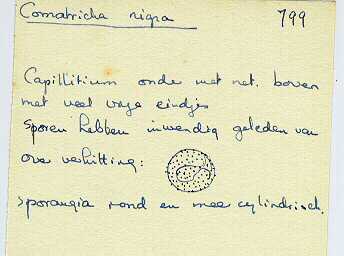 Comatricha nigra 799
Capillitium onder met net, boven
met veel vrije eindjes
Sporen hebben inwendig geleden van
oververhitting:
Sporangia rond en meer cylindrisch.